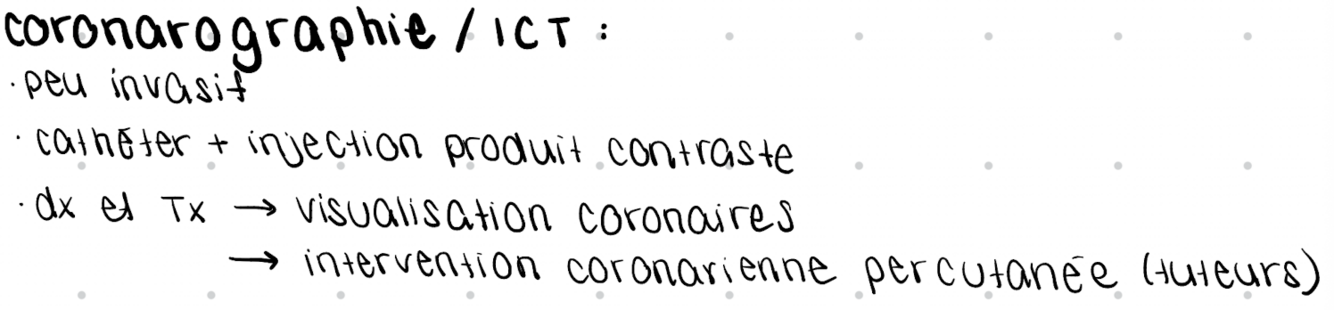 coronarographie / ICT :
· peu invasif
· cathéter + injection produit contraste
· dx et Tx → visualisation coronaires
→ intervention coronarienne percutanée (tuteurs)